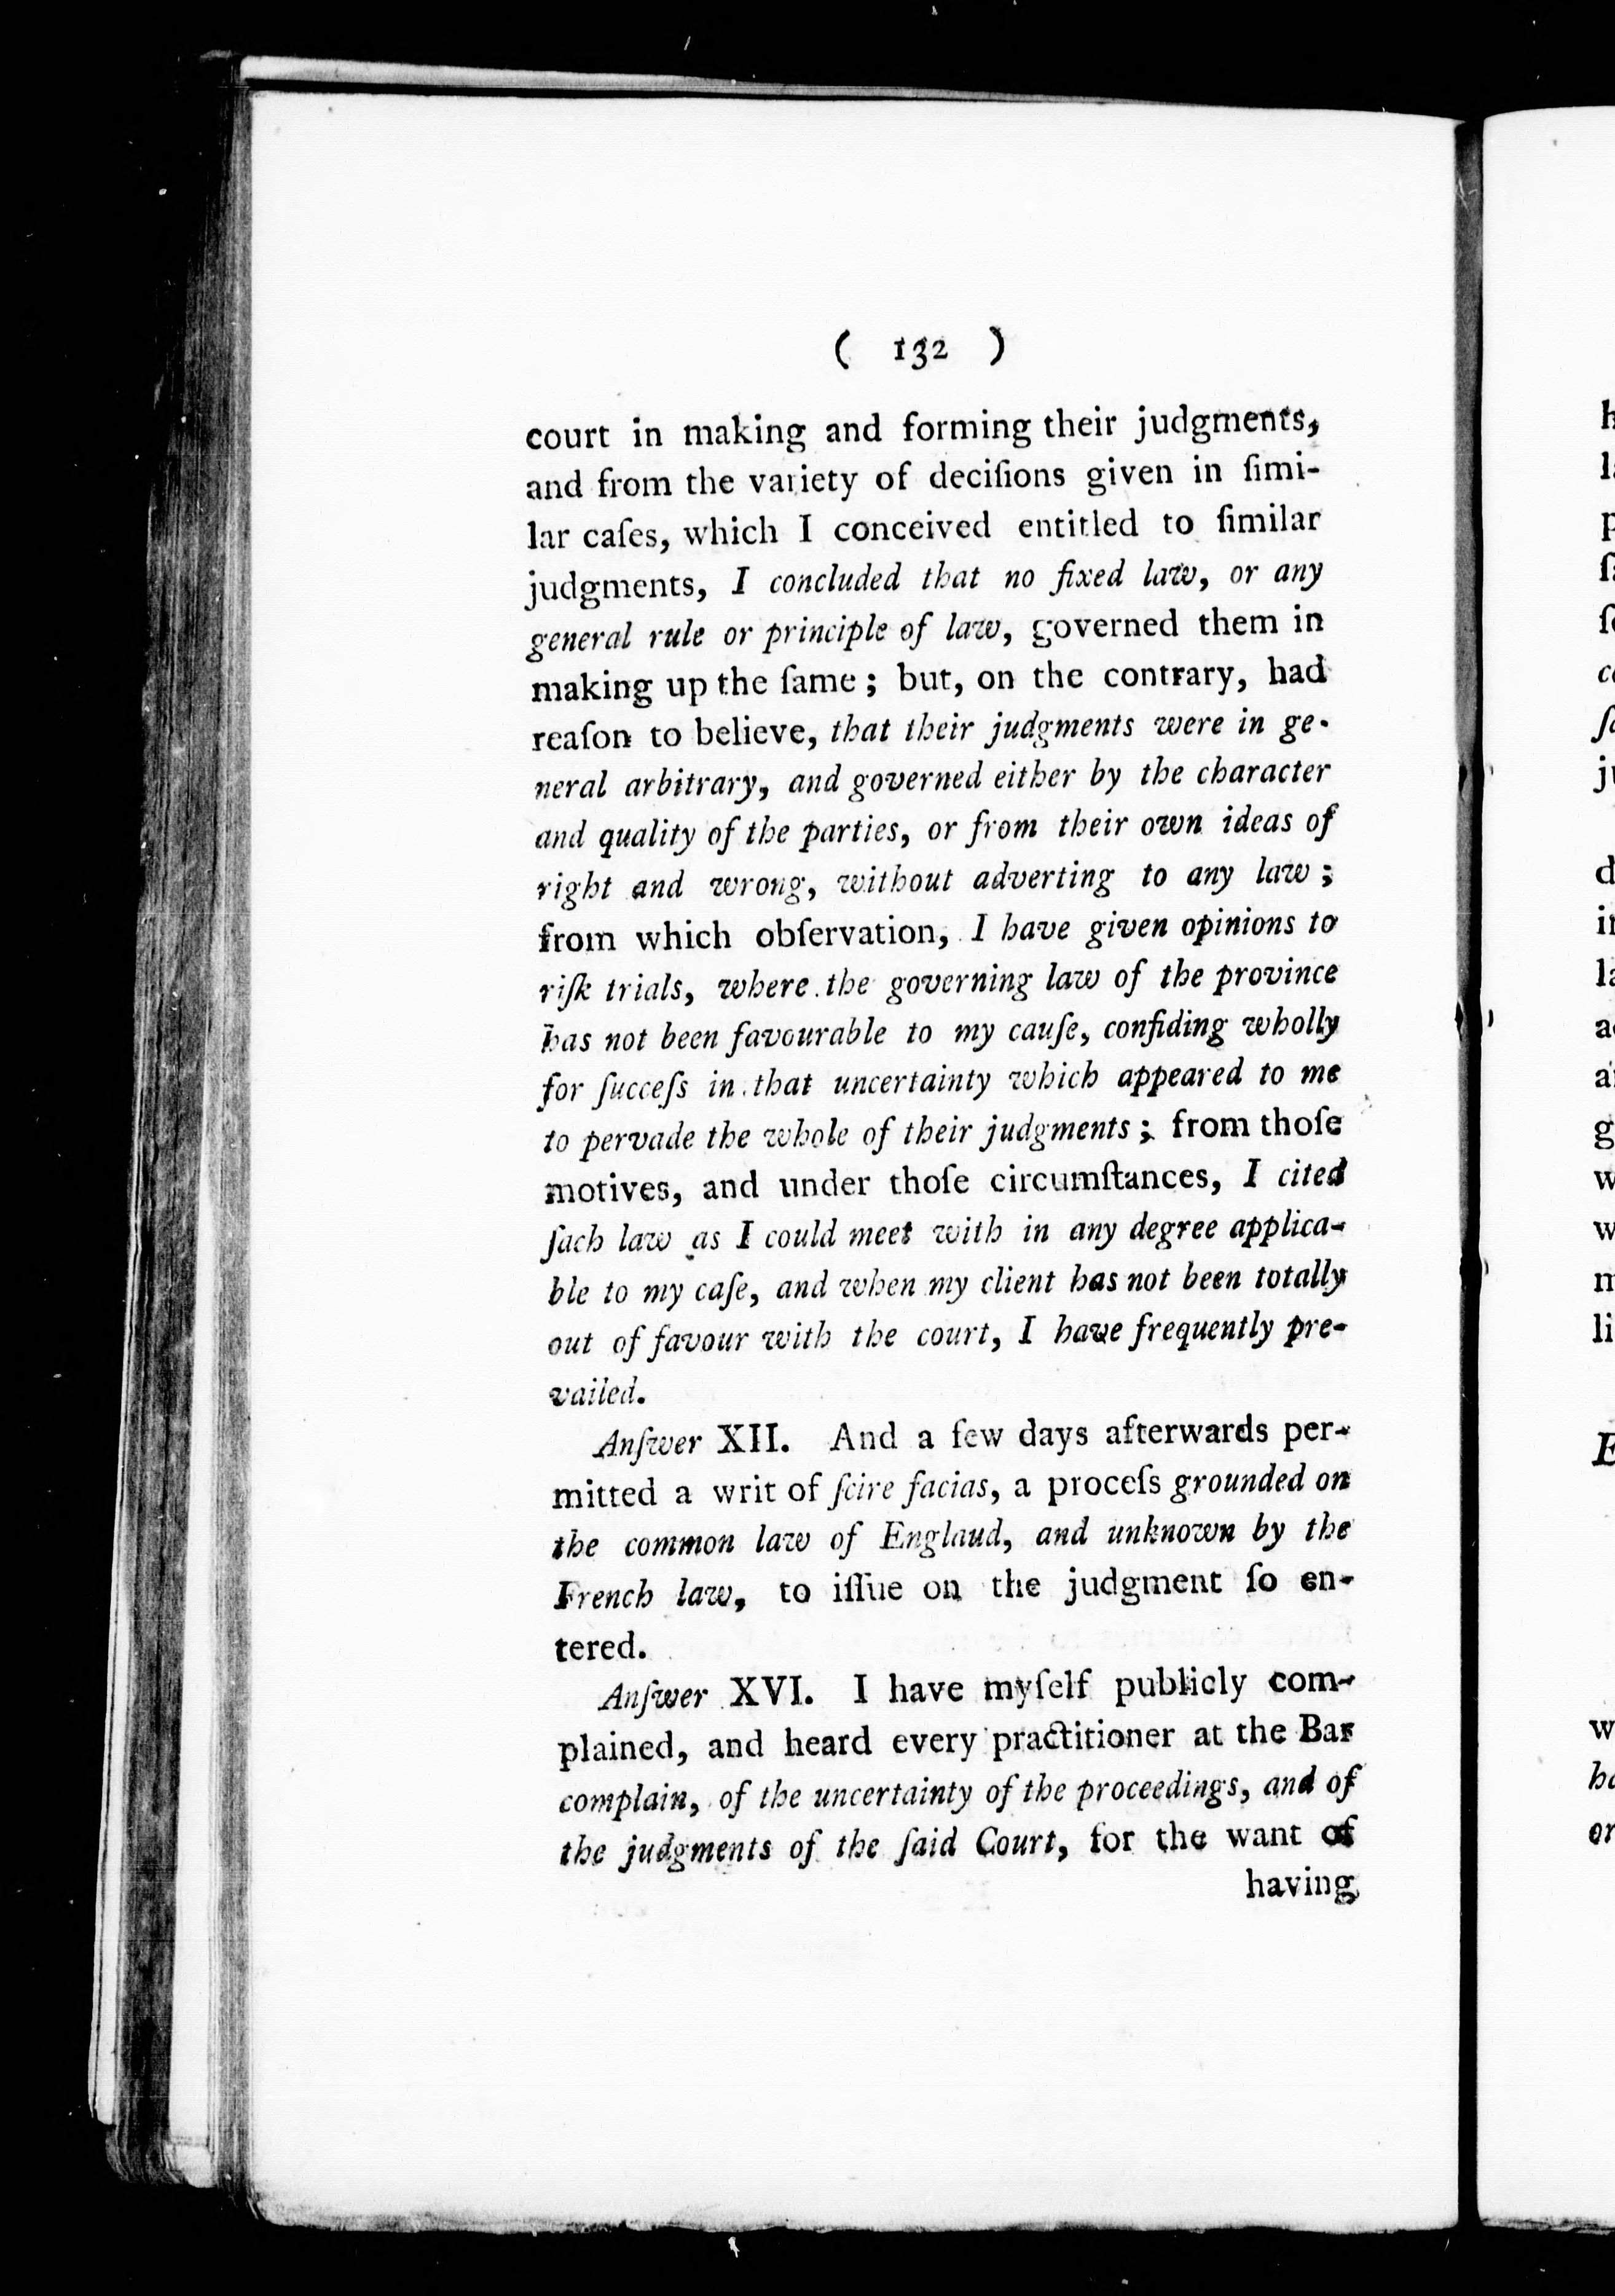 ( 132 )
court in making and forming their judgments,
and from the variety of deciſions given in ſimi-
lar caſes, which I conceived entitled to ſimilar
judgments, I concluded that no fixed law, or any
general rule or principle of law, governed them in
making up the ſame; but, on the contrary, had
reaſon to believe, that their judgments were in ge-
neral arbitrary, and governed either by the character
and quality of the parties, or from their own ideas of
right and wrong, without adverting to any law;
from which obſervation, I have given opinions to
riſk trials, where the governing law of the province
has not been favourable to my cauſe, confiding wholly
for ſucceſs in that uncertainty which appeared to me
to pervade the whole of their judgments; from thoſe
motives, and under thoſe circumſtances, I cited
ſach law as I could meet with in any degree applica-
ble to my caſe, and when my client has not been totally
out of favour with the court, I have frequently pre-
vailed.
Anſwer XII. And a few days afterwards per-
mitted a writ of ſcire facias, a proceſs grounded on
the common law of Englaud, and unknown by the
French law, to iſſue on the judgment ſo en-
tered.
Anſwer XVI. I have myſelf publicly com-
plained, and heard every practitioner at the Bar
complain, of the uncertainty of the proceedings, and of
the judgments of the ſaid Court, for the want of
having